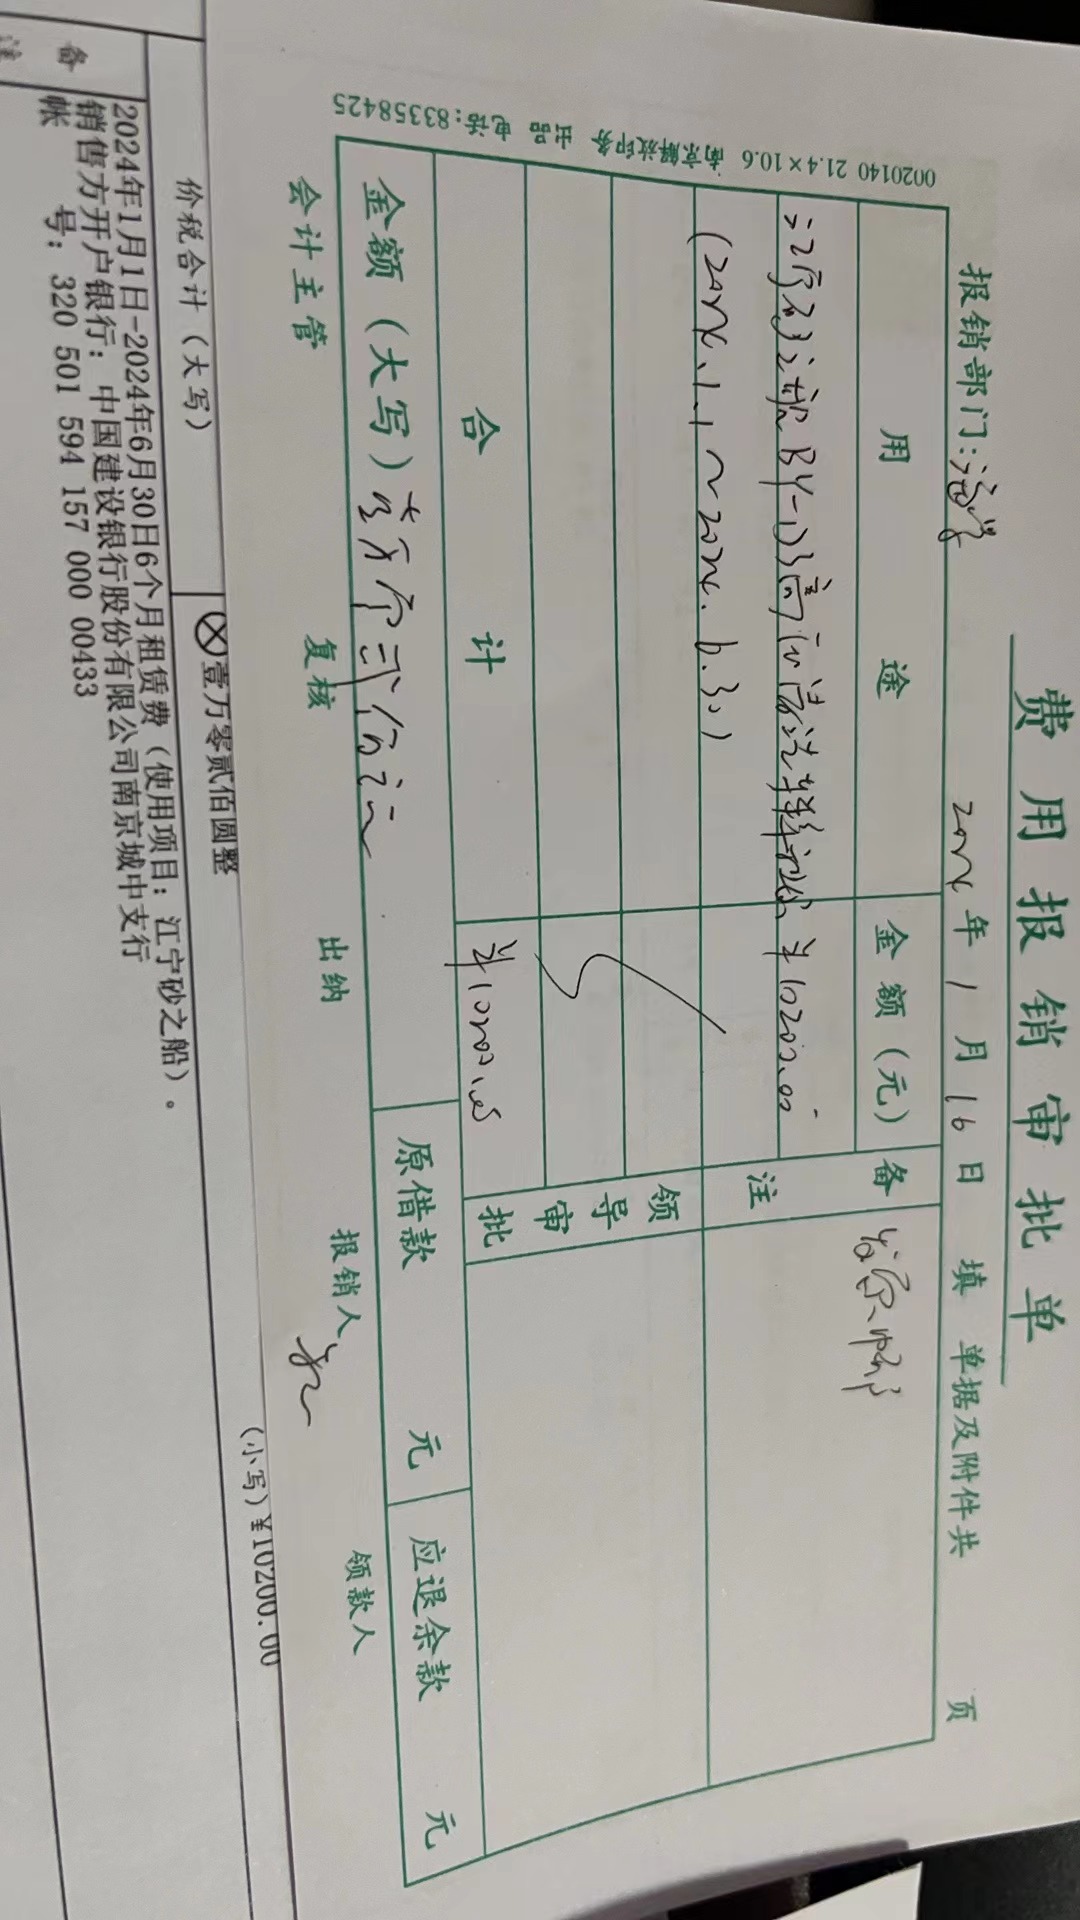 费用报销审批单
报销部门: 2024年1月16日填 单据及附件共 页
用途 金额(元) 备注
BY-13高 清洗 ¥10200.00
(2024.1.1~2024.6.30)
合计 ¥10200.00
领导审批
金额(大写)壹万零贰佰元 原借款 元 应退余款 元
会计主管 复核 出纳 报销人 领款人
0020140 21.4×10.6 南京解放印务 出品 电话:83358425
价税合计(大写) ⊗壹万零贰佰圆整 (小写)¥10200.00
备注
2024年1月1日-2024年6月30日6个月租赁费(使用项目:江宁砂之船)。
销售方开户银行:中国建设银行股份有限公司南京城中支行
帐 号:320 501 594 157 000 00433